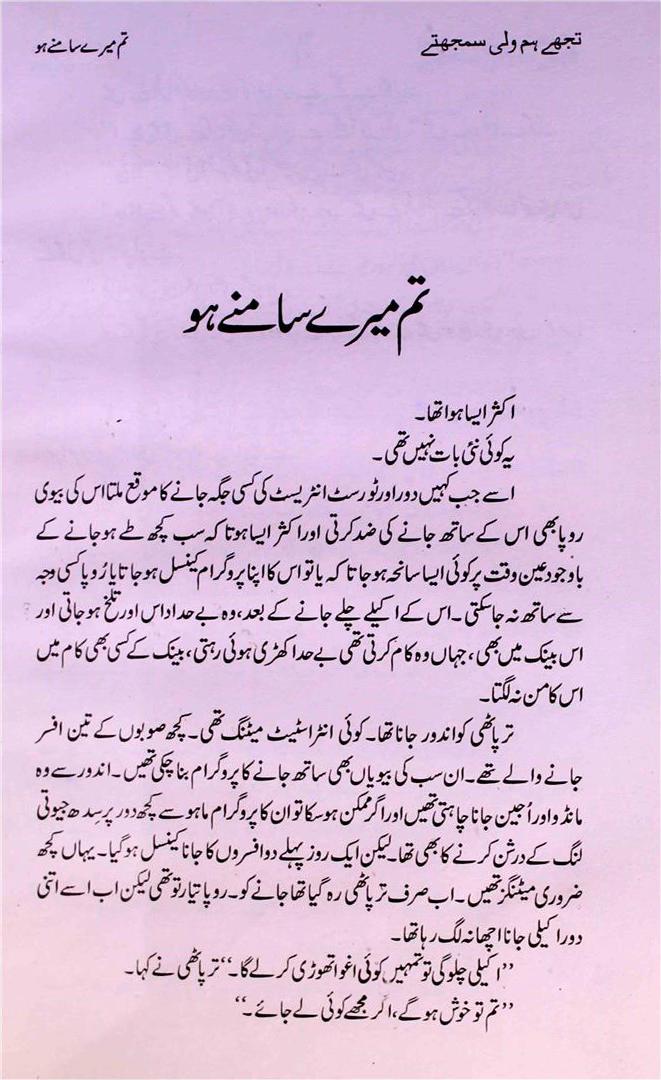 تجھے ہم ولی سمجھتے
تم میرے سامنے ہو
تم میرے سامنے ہو
اکثر ایسا ہوا تھا۔
یہ کوئی نئی بات نہیں تھی۔
اسے جب کہیں دور اور ٹورسٹ انٹریسٹ کی کسی جگہ جانے کا موقع ملتا اس کی بیوی
روپا بھی اس کے ساتھ جانے کی ضد کرتی اور اکثر ایسا ہوتا کہ سب کچھ طے ہو جانے کے
باوجود عین وقت پر کوئی ایسا سانحہ ہو جاتا کہ یا تو اس کا اپنا پروگرام کینسل ہو جاتا یا رُوپا کسی وجہ
سے ساتھ نہ جا سکتی۔ اس کے اکیلے چلے جانے کے بعد، وہ بے حد اداس اور تلخ ہو جاتی اور
اس بینک میں بھی، جہاں وہ کام کرتی تھی بے حد اکھڑی ہوئی رہتی، بینک کے کسی بھی کام میں
اس کا من نہ لگتا۔
ترپاٹھی کو اندور جانا تھا۔ کوئی انٹر اسٹیٹ میٹنگ تھی۔ کچھ صوبوں کے تین افسر
جانے والے تھے۔ ان سب کی بیویاں بھی ساتھ جانے کا پروگرام بنا چکی تھیں۔ اندور سے وہ
مانڈو اور اُجین جانا چاہتی تھیں اور اگر ممکن ہو سکا تو ان کا پروگرام ماہو سے کچھ دور پر سِدھ جیوتی
لنگ کے درشن کرنے کا بھی تھا۔ لیکن ایک روز پہلے دو افسروں کا جانا کینسل ہو گیا۔ یہاں کچھ
ضروری میٹنگز تھیں۔ اب صرف ترپاٹھی رہ گیا تھا جانے کو۔ روپا تیار تو تھی لیکن اب اسے اتنی
دور اکیلی جانا اچھا نہ لگ رہا تھا۔
”اکیلی چلو گی تو تمہیں کوئی اغوا تھوڑی کر لے گا۔“ ترپاٹھی نے کہا۔
”تم تو خوش ہو گے، اگر مجھے کوئی لے جائے۔“